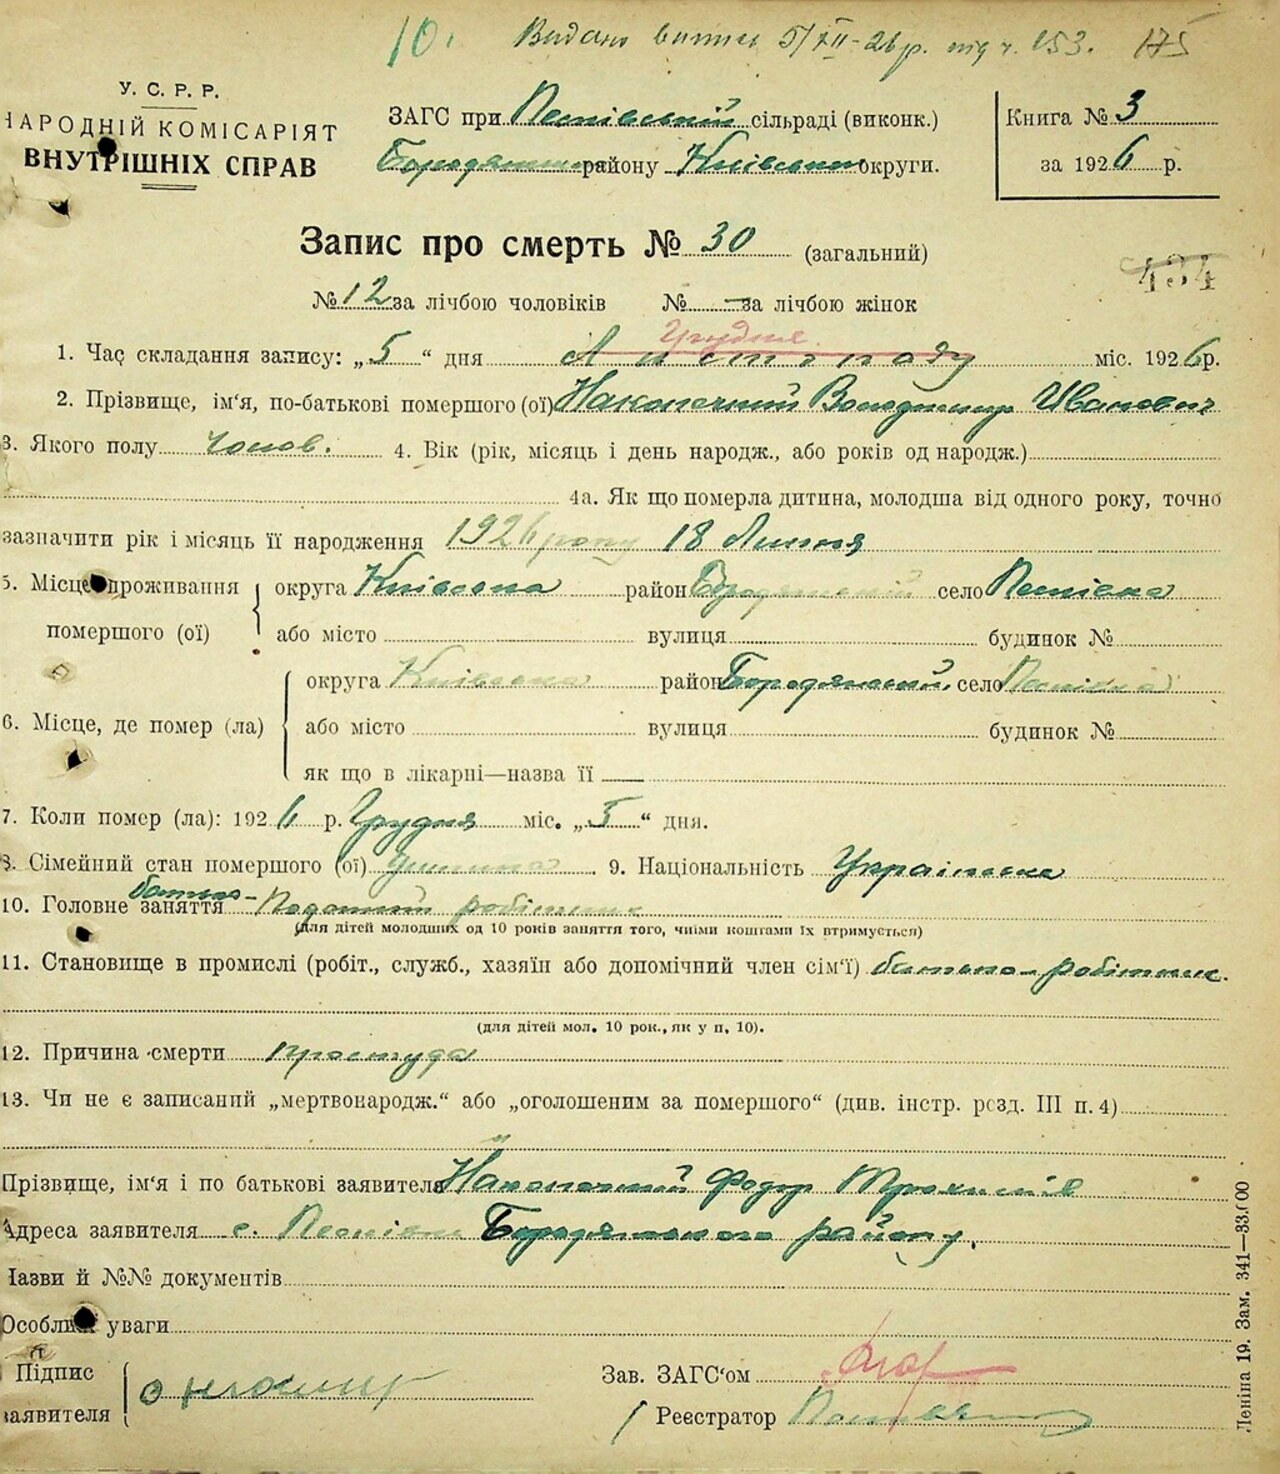 10. Видано витяг 5/XII-26 р. під ч. 153. 175
У. С. Р. Р.
НАРОДНІЙ КОМІСАРІЯТ
ВНУТРІШНІХ СПРАВ
ЗАГС при сільраді (виконк.)
Бородянського району Київської округи.
Книга № 3
за 1926 р.
Запис про смерть № 30 (загальний)
434
№ 12 за лічбою чоловіків № — за лічбою жінок
Грудня
1. Час складання запису: „5“ дня Листопаду міс. 1926 р.
2. Прізвище, ім'я, по-батькові помершого (ої) Наконечний Володимир Іванович
3. Якого полу чолов. 4. Вік (рік, місяць і день народж., або років од народж.)
4а. Як що померла дитина, молодша від одного року, точно
зазначити рік і місяць її народження 1926 року 18 Липня
5. Місце проживання помершого (ої) округа Київська район Бородянський село
або місто вулиця будинок №
6. Місце, де помер (ла) округа Київська район Бородянський село
або місто вулиця будинок №
як що в лікарні—назва її —
7. Коли помер (ла): 1926 р. Грудня міс. „5“ дня.
8. Сімейний стан помершого (ої) дитина 9. Національність Українська
батько -
10. Головне заняття робітник
(для дітей молодших од 10 років заняття того, чиїми коштами їх втримується)
11. Становище в промислі (робіт., служб., хазяїн або допомічний член сім'ї) батько-робітник.
(для дітей мол. 10 рок., як у п. 10).
12. Причина смерти простуда
13. Чи не є записаний „мертвонародж.“ або „оголошеним за помершого“ (див. інстр. розд. III п. 4)
Прізвище, ім'я і по батькові заявителя Наконечний Федір
Адреса заявителя с. Бородянського району.
Назви й №№ документів
Особливі уваги
Підпис заявителя
Зав. ЗАГС'ом
Реєстратор
Леніна 19. Зам. 341—83.000